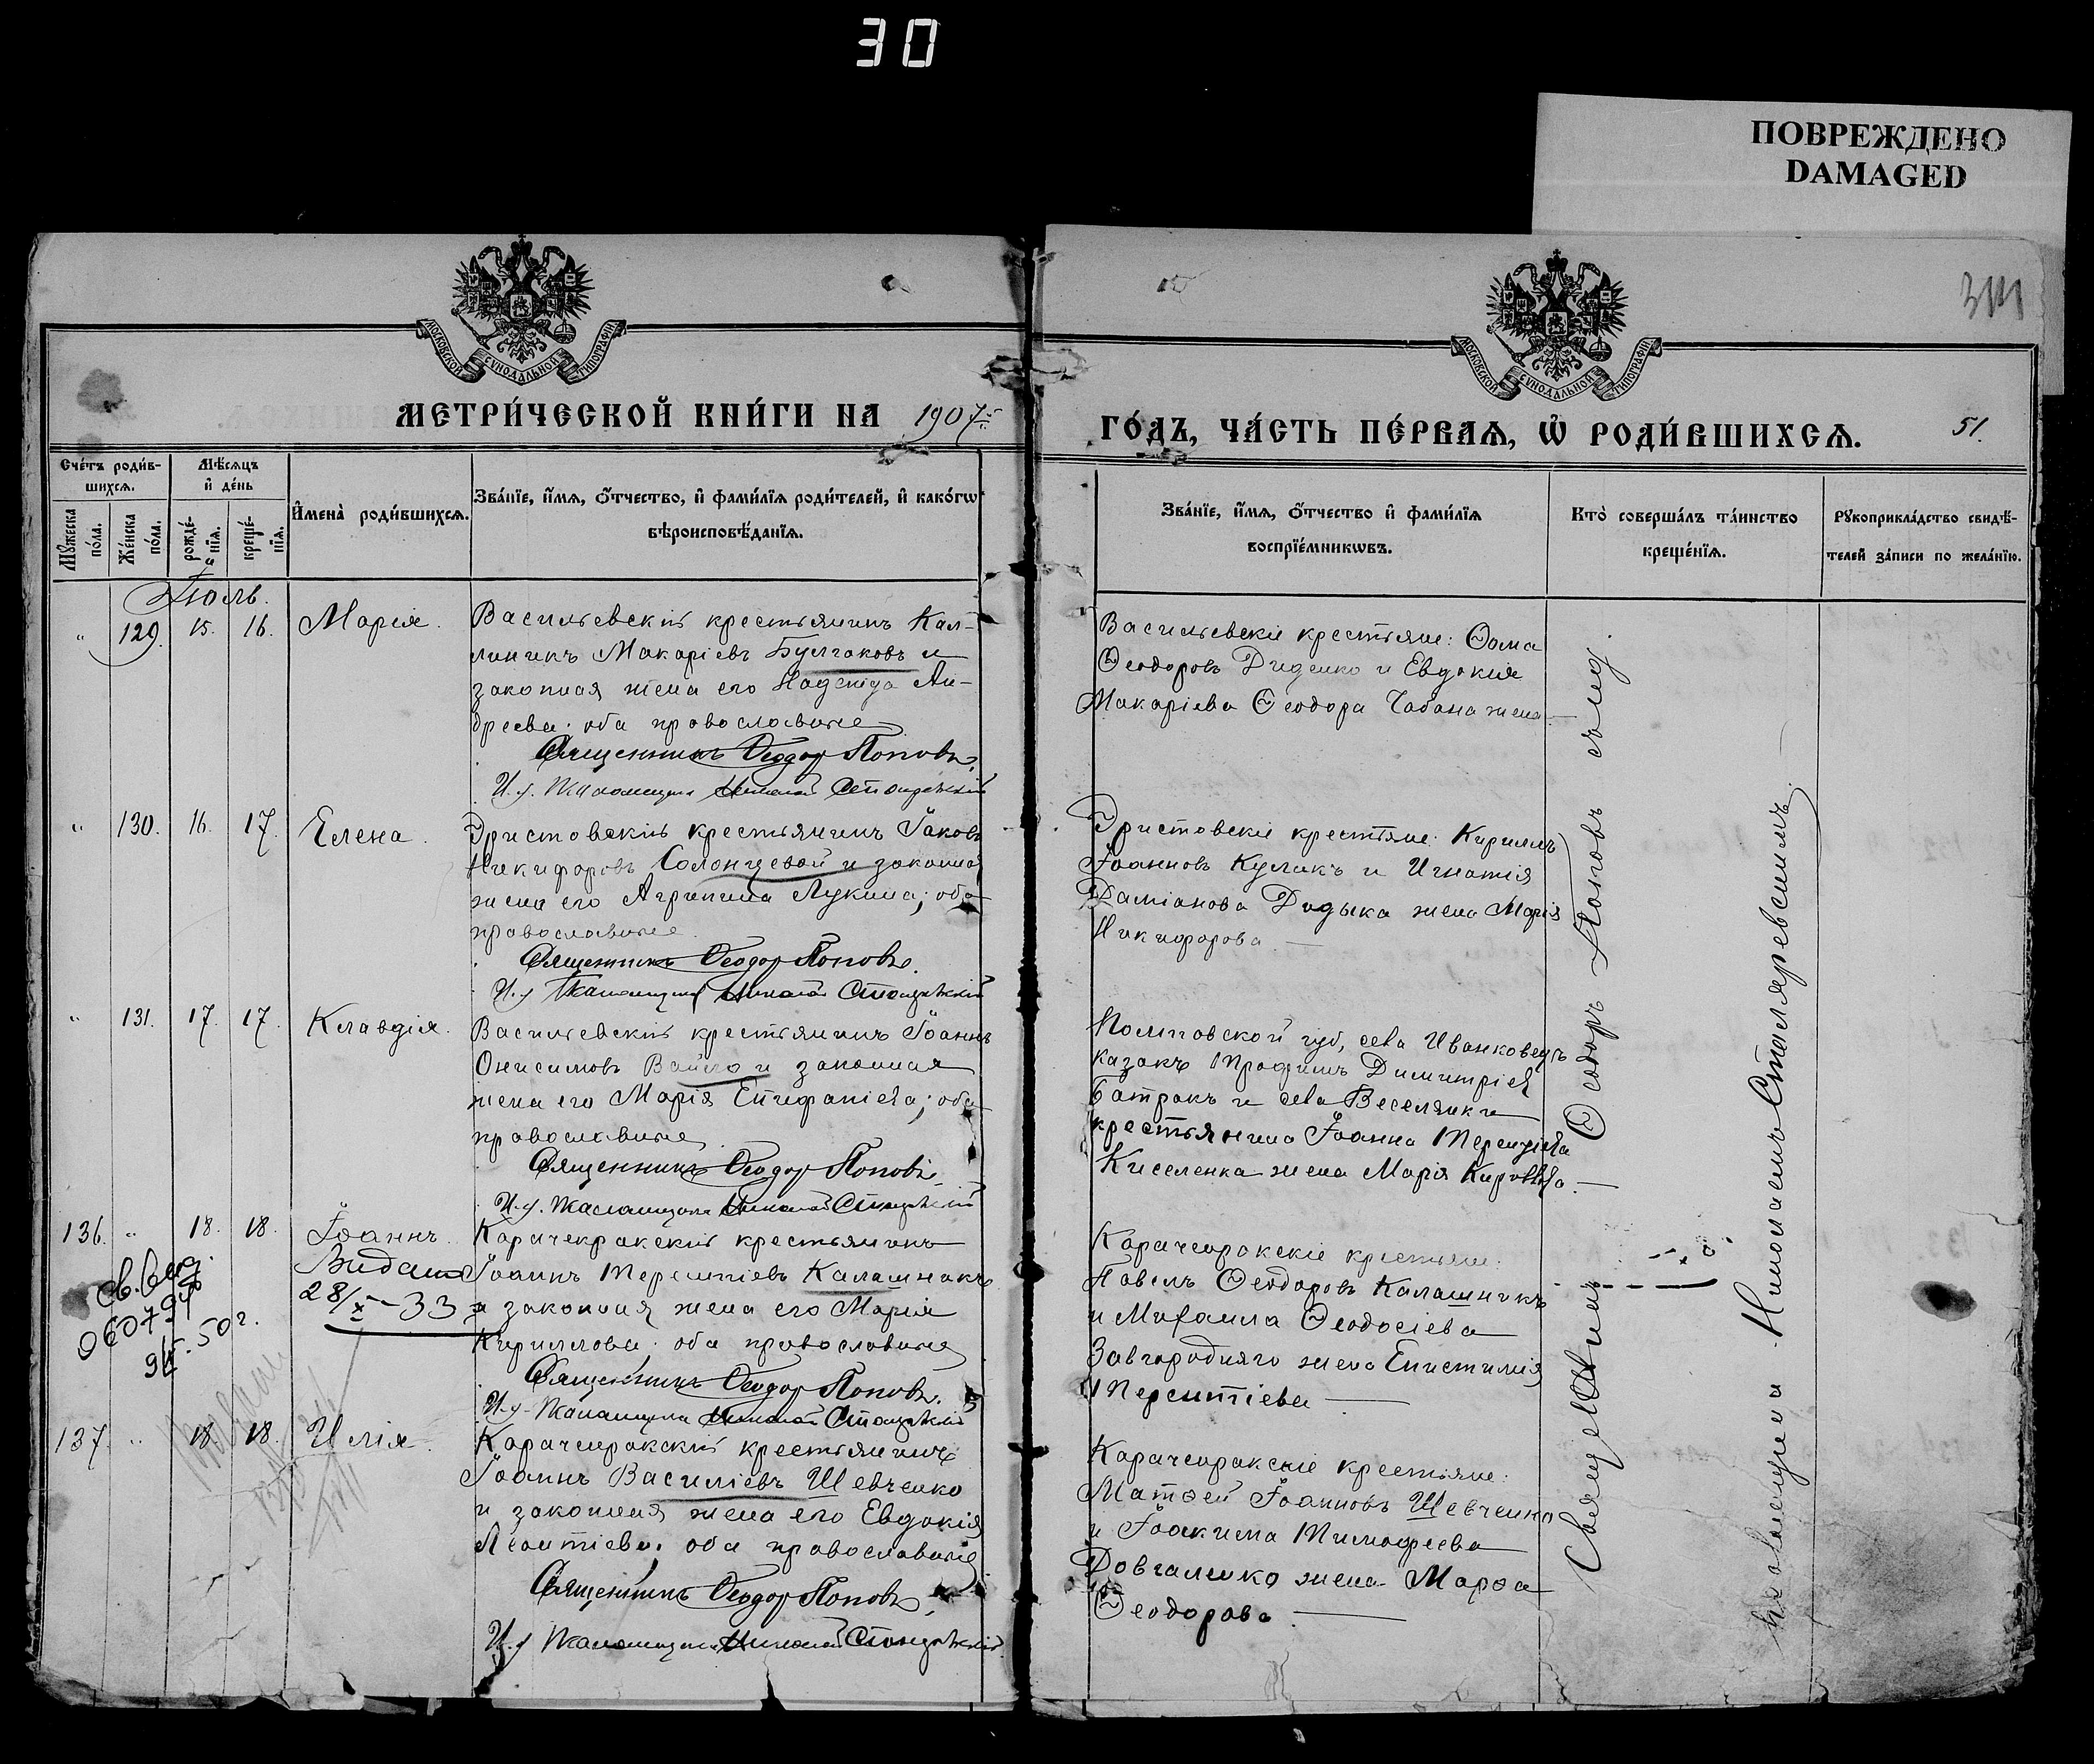 30
ПОВРЕЖДЕНО
DAMAGED
МОСКОВСКОЙ СѴНОДАЛЬНОЙ ТИПОГРАФІИ
МОСКОВСКОЙ СѴНОДАЛЬНОЙ ТИПОГРАФІИ
МЕТРИ́ЧЕСКОЙ КНИ́ГИ НА 1907
ГО́ДЪ, ЧА́СТЬ ПЕ́РВАѦ, Ѿ РОДИ́ВШИХСѦ.
51.
Сче́тъ роди́в-
шихсѧ.
Мѣ́сѧцъ
и҆ де́нь
Мꙋ́жеска
по́ла.
Же́нска
по́ла.
рожде́-
нїѧ.
креще́-
нїѧ.
И҆мена̀ роди́вшихсѧ.
Зва́нїе, и҆́мѧ, ѻ҆́тчество, и҆ фами́лїѧ роди́телей, и҆ како́гѡ
вѣроисповѣ́данїѧ.
Зва́нїе, и҆́мѧ, ѻ҆́тчество и҆ фами́лїѧ
воспрїе́мникѡвъ.
Кто̀ соверша́лъ та́инство
креще́нїѧ.
Рꙋкоприкла́дство свидѣ́-
телей за́писи по жела́нїю.
Іюль.
" 129. 15. 16. Марія. Васильевскій крестьянинъ Кал-
линикъ Макаріевъ Булгаковъ и
законная жена его Надежда Ан-
дреева; оба православные
Священникъ Ѳеодор Поповъ.
И. д. Псаломщика Николай
Васильевскіе крестьяне: Ѳома
Ѳеодоровъ Диденко и Евдокія
Макаріева Ѳеодора Чабана жена
" 130. 16. 17. Елена. Эристовскій крестьянинъ Іаковъ
Никифоровъ Солонцевой и законная
жена его Агрипина Лукина; оба
православные.
Священникъ Ѳеодор Поповъ.
И. д. Псаломщика Николай
Эристовскіе крестьяне: Кириллъ
Іоанновъ Куликъ и Игнатія
Даміанова Дидыка жена Марія
Никифорова
" 131. 17. 17. Клавдія. Васильевскій крестьянинъ Іоаннъ
Онисимовъ и законная
жена его Марія Епифаніева; оба
православные.
Священникъ Ѳеодор Поповъ.
И. д. Псаломщика Николай
Полтовской губ, села Иванковецъ
казакъ Трофимъ Димитріев
Батракъ и села Веселянки
крестьянина Іоанна Терентіева
Киселенка жена Марія Кирова.
136. " 18. 18. Іоаннъ. Карачекракскій крестьянинъ
Іоаннъ Терентіевъ Калашникъ
и законная жена его Марія
Кириллова; оба православные
Священникъ Ѳеодор Поповъ.
И. д. Псаломщика Николай
Видано
28/X-33
50 г.
Карачекракскіе крестьяне:
Павелъ Ѳеодоровъ Калашникъ
и Михаила Ѳеодосіева
Завгородняго жена Епистимія
Терентіева
137. " 18. 18. Илія. Карачекракскій крестьянинъ
Іоаннъ Василіевъ Шевченко
и законная жена его Евдокія
Леонтіева; оба православные
Священникъ Ѳеодор Поповъ.
И. д. Псаломщика Николай
Карачекракскіе крестьяне:
Матѳей Іоанновъ Шевченко
и Іоакима Тимофеева
Довгаленко жена Марѳа
Ѳеодорова
Священникъ Ѳеодоръ Поповъ съ и. д.
псаломщика Николаемъ Столяревскимъ.